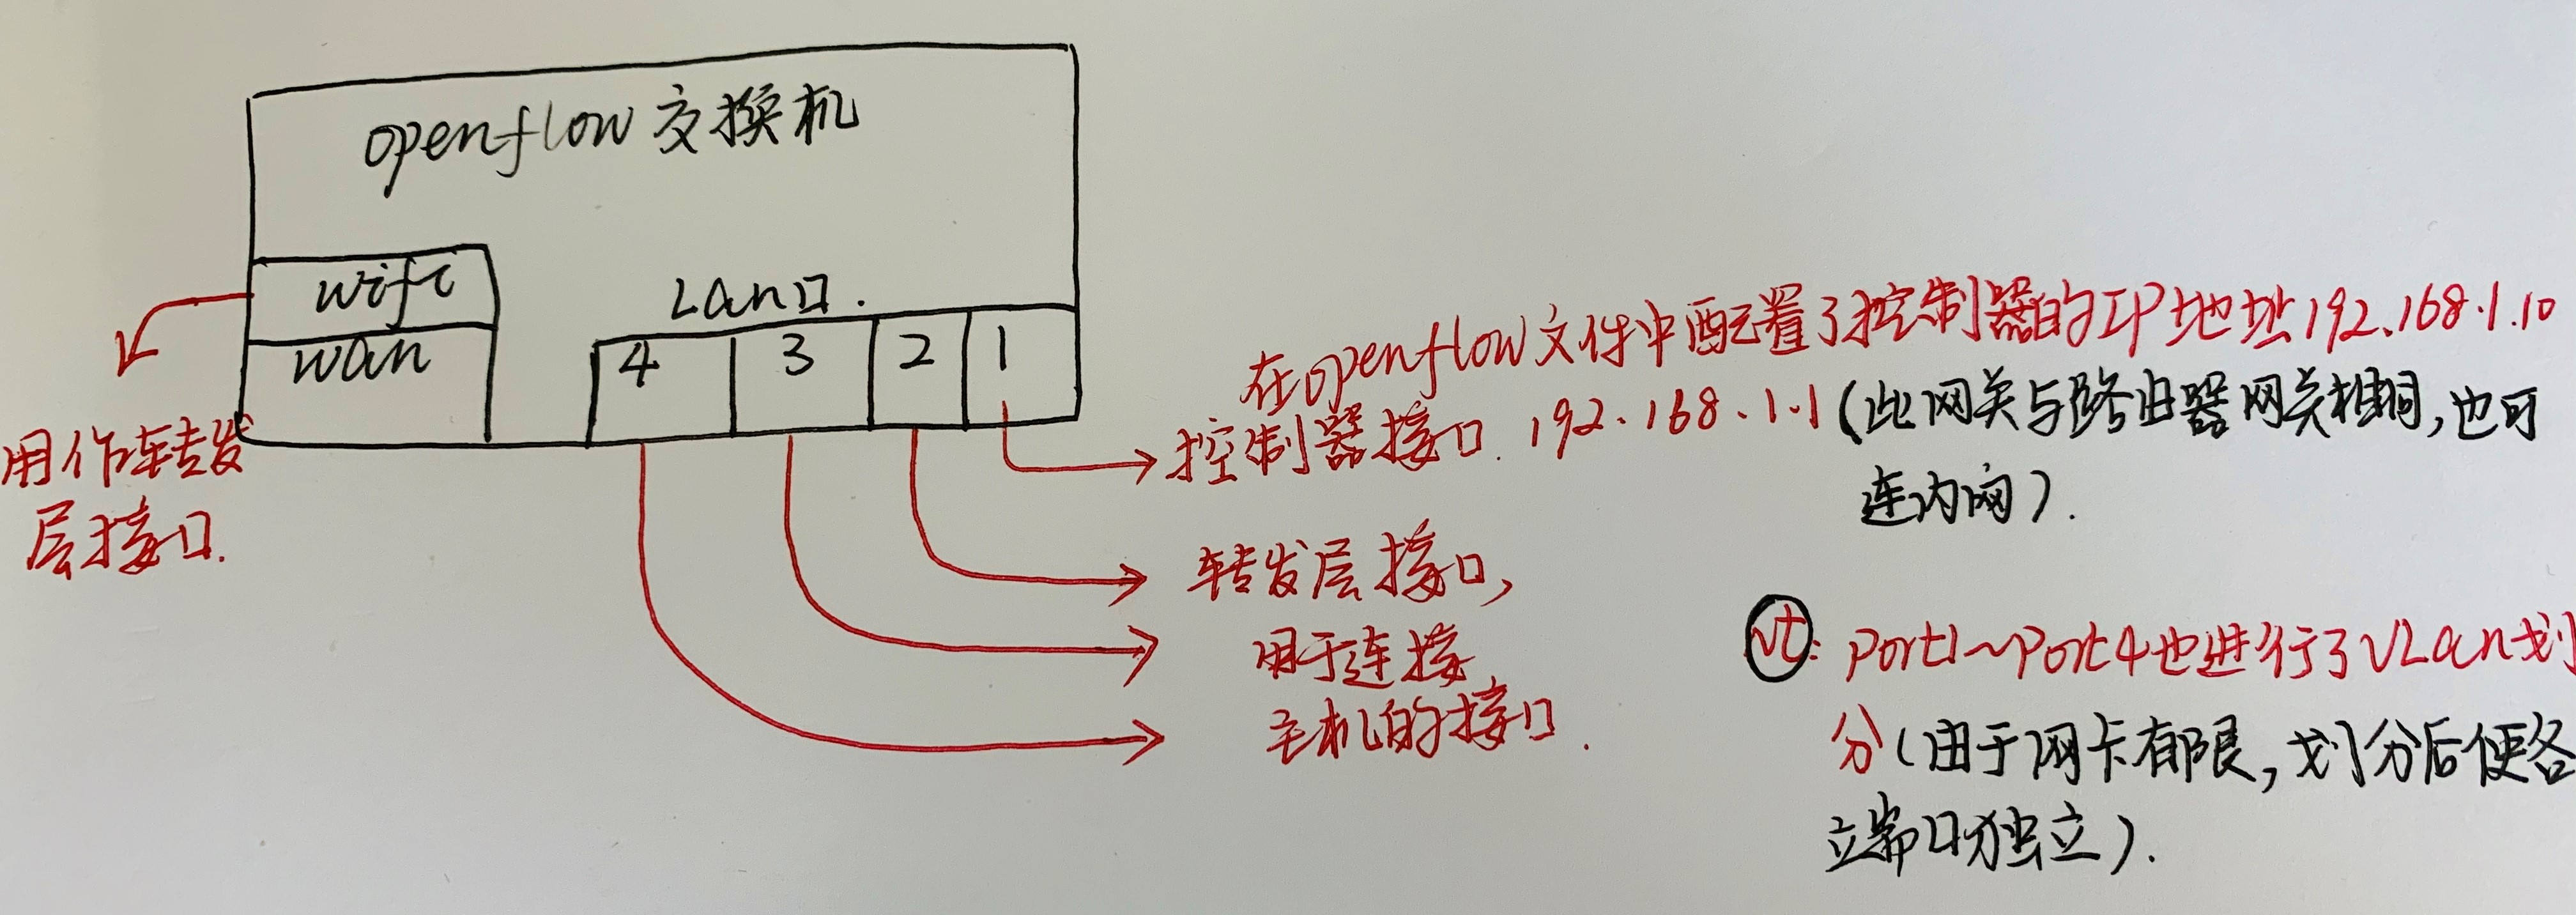 openflow 交换机
wifi
wan
Lan口.
4 3 2 1
用作转发
层接口.
在openflow文件中配置了控制器的IP地址192.168.1.10
控制器接口. 192.168.1.1(此网关与路由器网关相同,也可
连内网).
转发层接口,
用于连接
主机的接口.
: Port1~Port4也进行了VLan划
分(由于网卡有限,划分后使各
立端口独立).